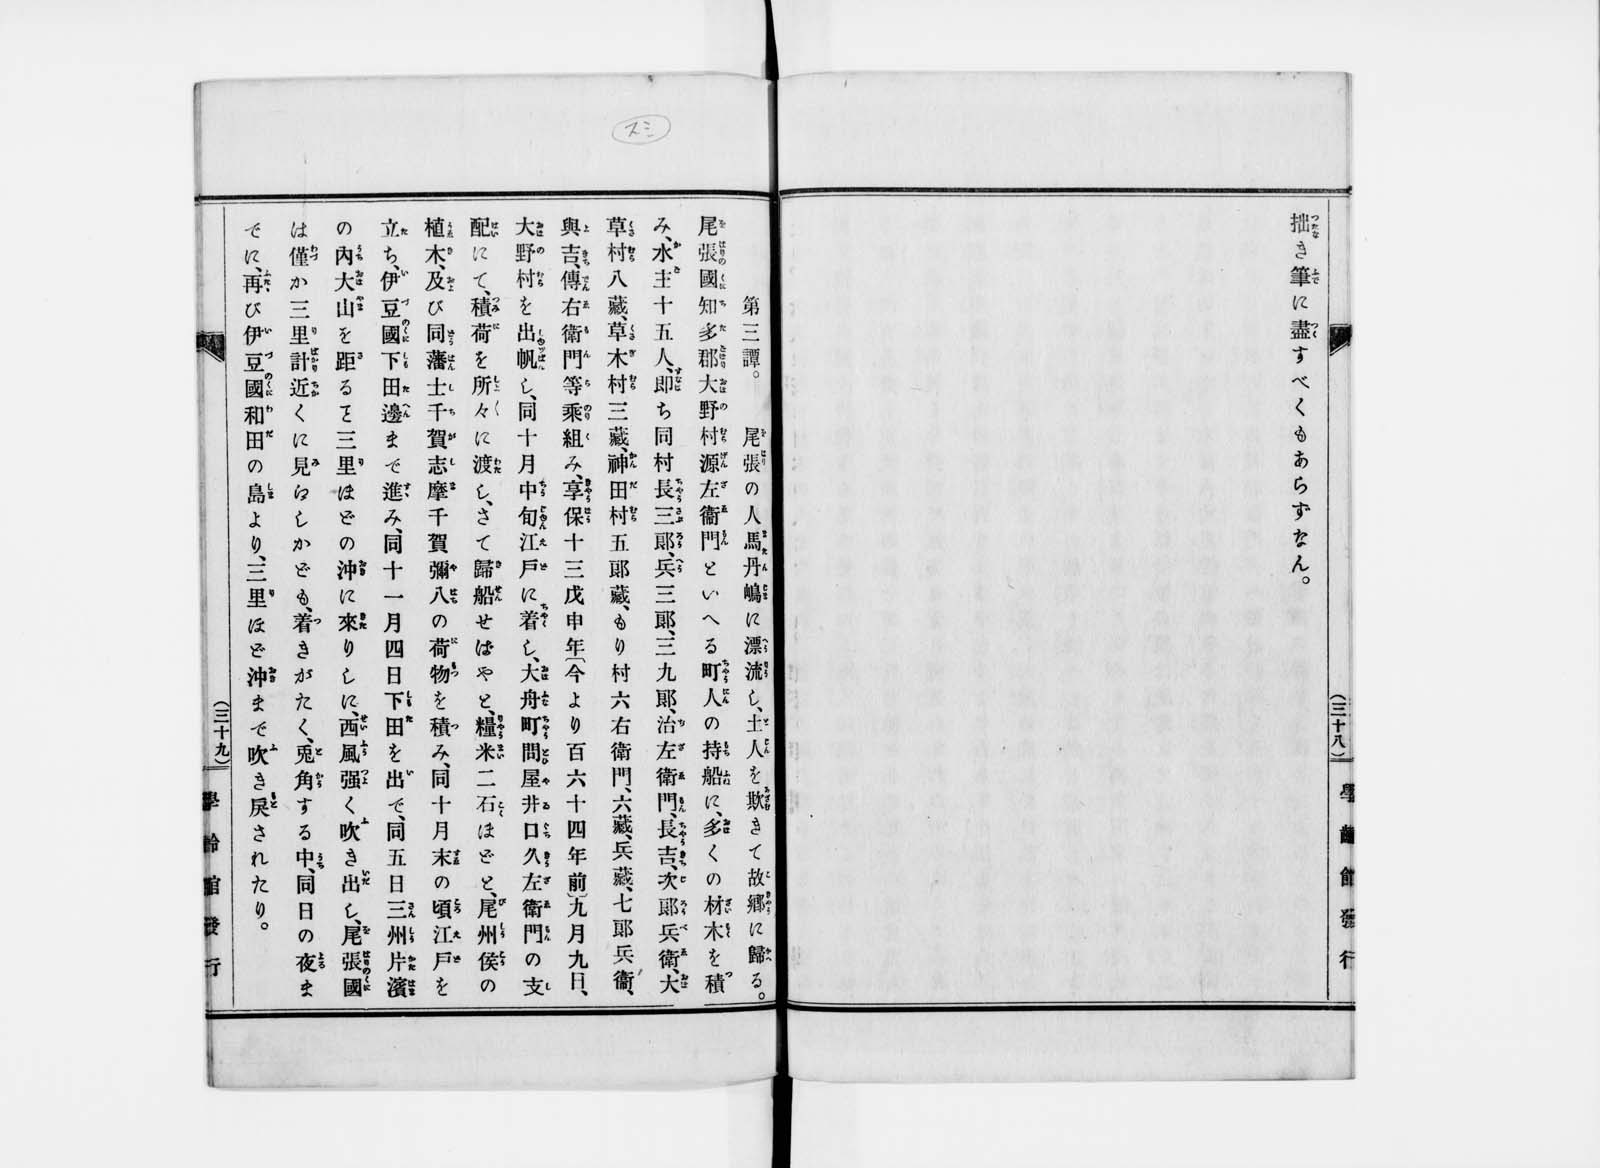 拙き筆に盡すべくもあらずなん。
(三十八)
學齡館發行
スミ
第三譚。 尾張の人馬丹嶋に漂流し、土人を欺きて故郷に歸る。
尾張國知多郡大野村源左衞門といへる町人の持船に、多くの材木を積
み、水主十五人、即ち同村長三郎、兵三郎、三九郎、治左衞門、長吉、次郎兵衞、大
草村八藏、草木村三藏、神田村五郎藏、もり村六右衞門、六藏、兵藏、七郎兵衞、
與吉、傳右衞門等乘組み、享保十三戊申年〔今より百六十四年前〕九月九日、
大野村を出帆し、同十月中旬江戸に着し、大舟町問屋井口久左衞門の支
配にて、積荷を所々に渡し、さて歸船せばやと、糧米二石ほどと、尾州侯の
植木、及び同藩士千賀志摩千賀彌八の荷物を積み、同十月末の頃江戸を
立ち、伊豆國下田邊まで進み、同十一月四日下田を出で、同五日三州片濱
の內大山を距るヿ三里ほどの沖に來りしに、西風强く吹き出し、尾張國
は僅か三里計近くに見江しかども、着きがたく、兎角する中、同日の夜ま
でに、再び伊豆國和田の島より、三里ほど沖まで吹き戾されたり。
(三十九)
學齡館發行